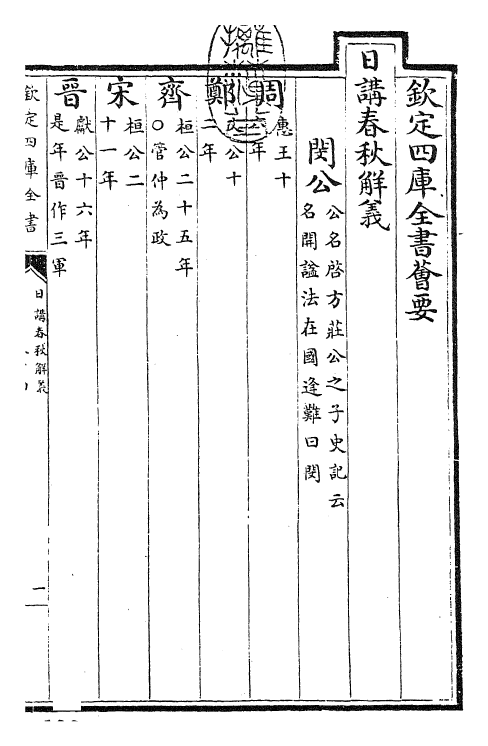 欽定四庫全書薈要
日講春秋解義
閔公
公名啓方莊公之子史記云
名開諡法在國逢難曰閔
周
惠王十
年
鄭
公十
二年
齊
桓公二十五年
○管仲為政
宋
桓公二
十一年
晉
獻公十六年
是年晉作三軍
欽定四庫全書
日講春秋解義
二